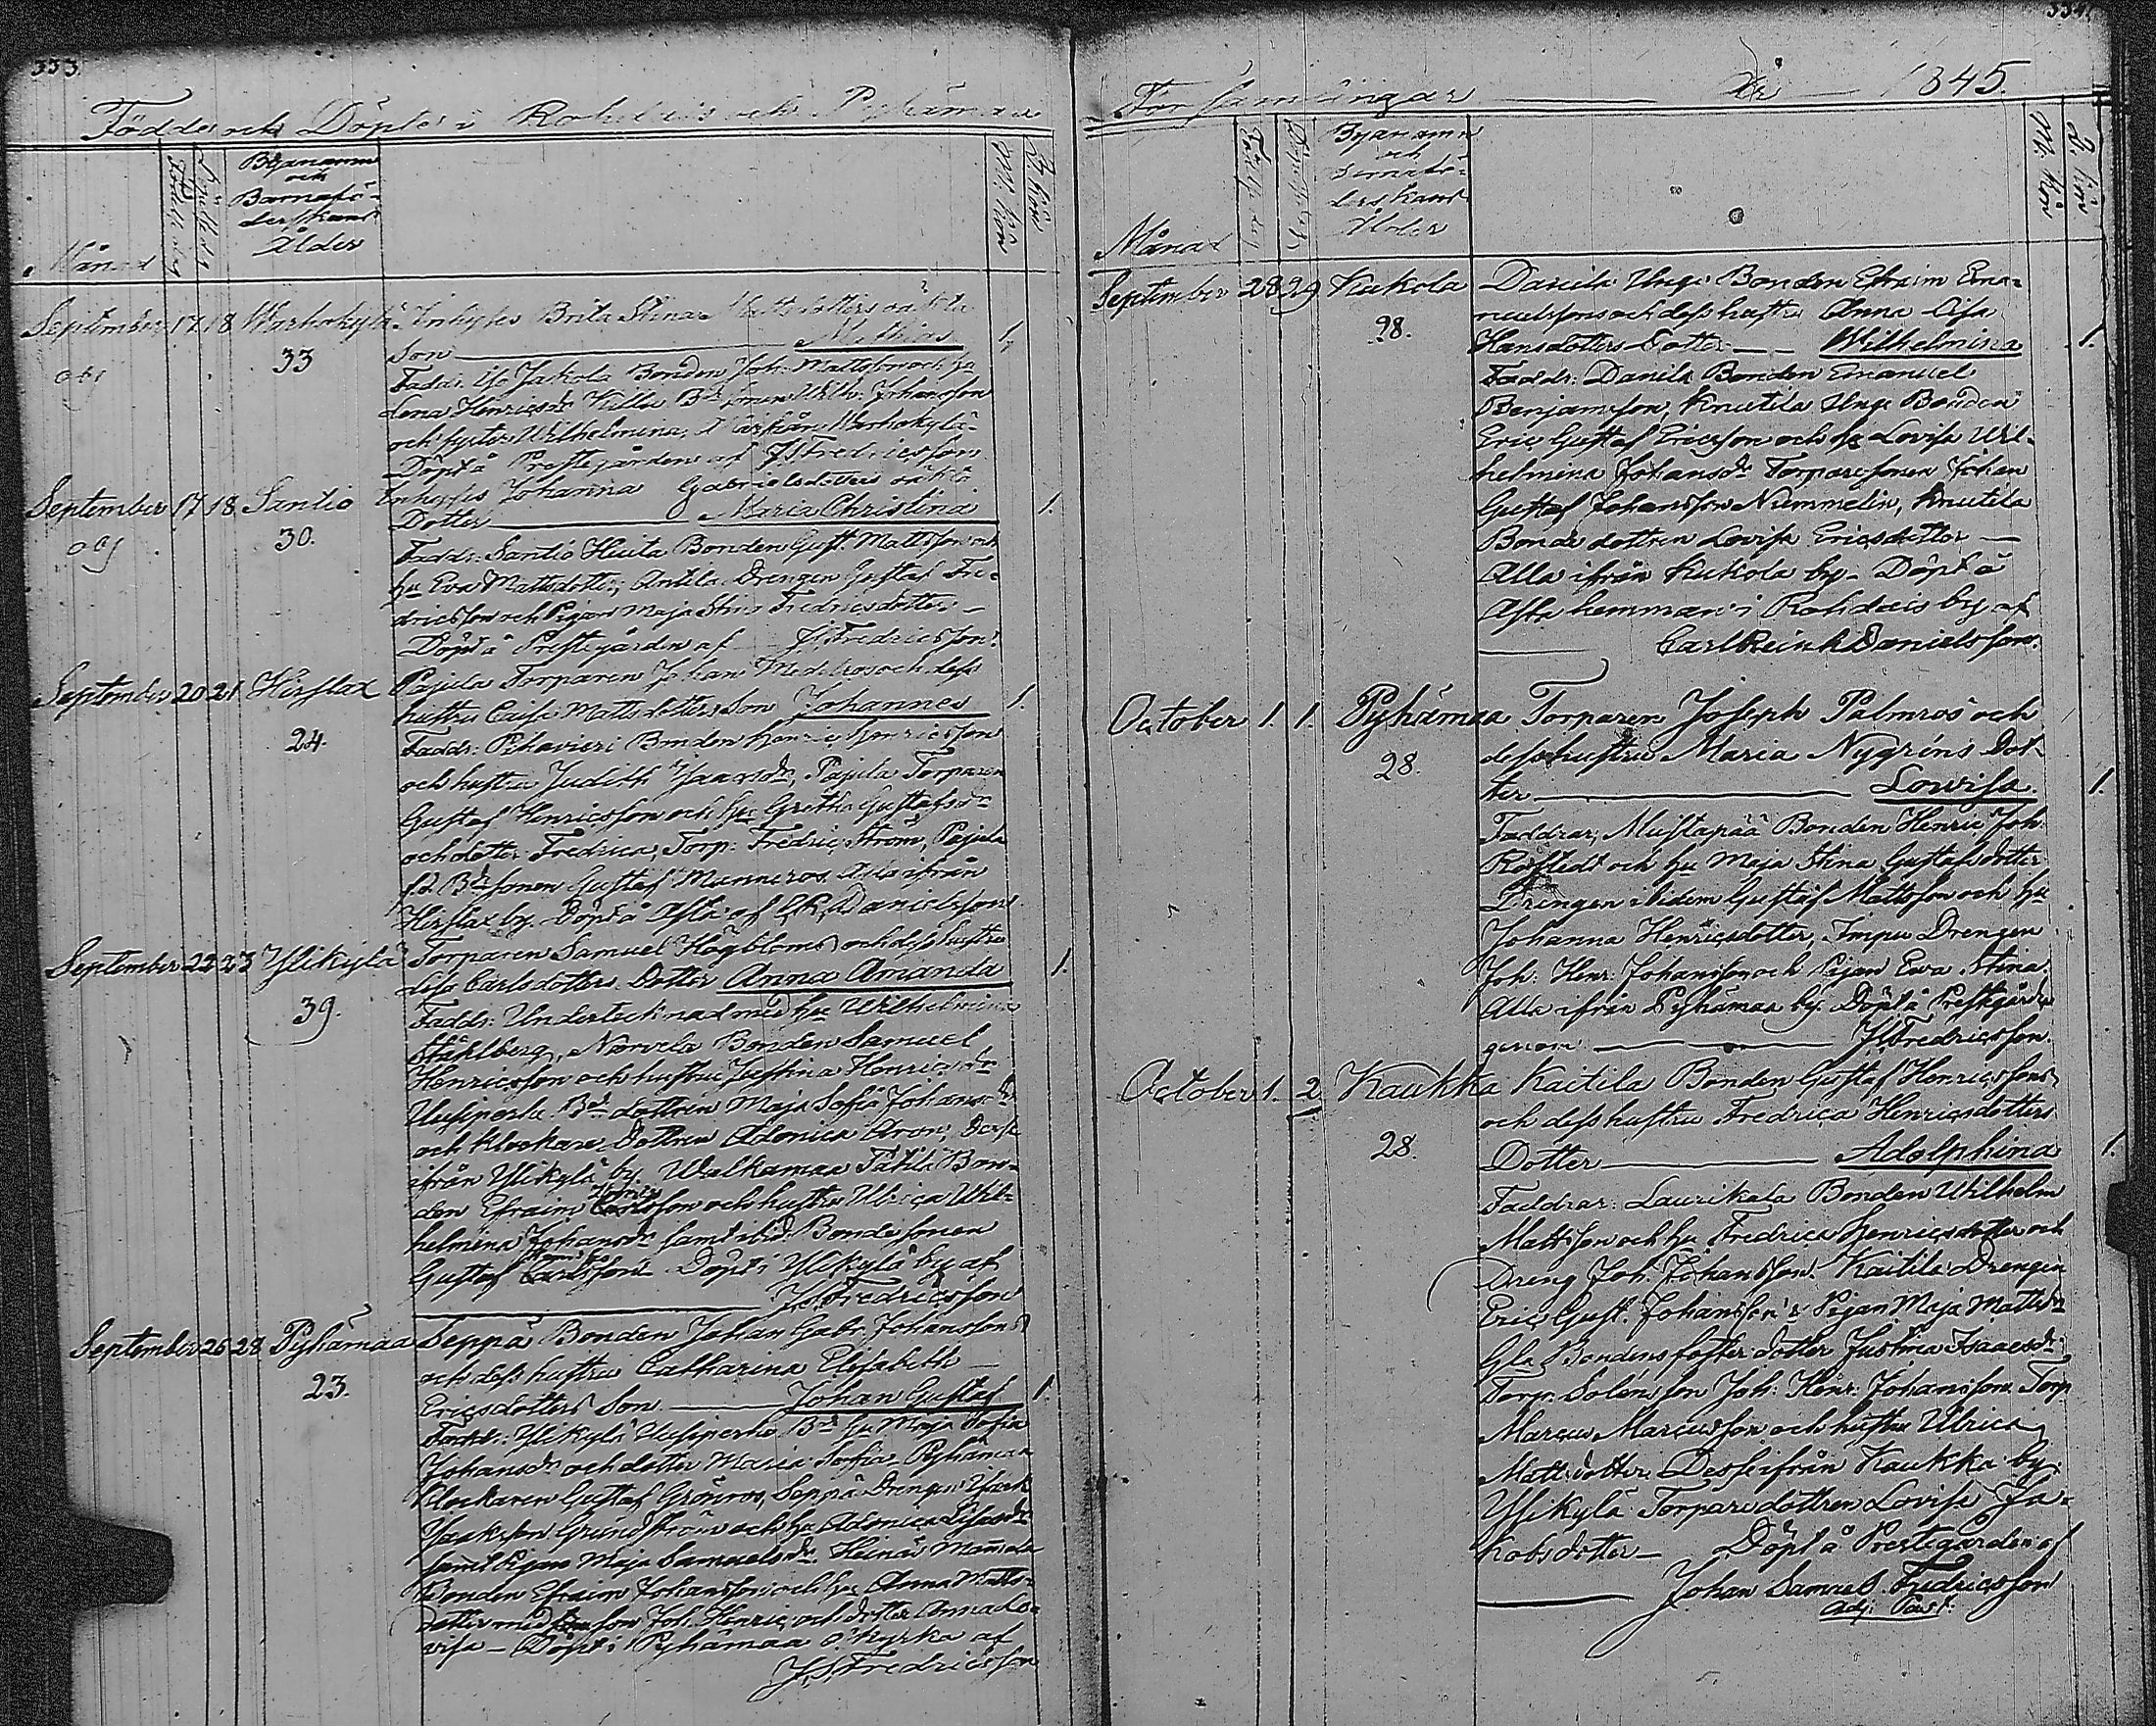 333.
Födde och Döpte i Rohdais och Pyhämaa
Månad
Födelsedag
Byanamn
och
Barnafö-
derskans
Ålder
M: kön
Q: kön
September 17 18 Warhokylä Inhyses Brita Stina Mattsdotters oäkta
Son Mathias 1.
33
Faddr: Jakola Bonden Joh: Mattsson och hu
Lena Henricsdr Bdesonen Wilh: Johansson
och syster Wilhelmina, Warhokylä
Döpt å Prestegården af JSFredricsson
September 17 18 Santio Inhyses Johanna Gabrielsdotters oäkta
Dotter Maria Christina 1.
30.
Faddr: Santio Huita Bonden Gust. Mattsson och
hu Eva Mattsdotter; Antila Drengen Gustaf Fre-
dricsson och Pigan Maja Stina Fredricsdotter –
Döpt å Prestegården af JSFredricsson.
September 20 21 Hirslax Pajula Torparen Johan Medelros och dess
hustru Caisa Mattsdotters Son Johannes 1.
24.
Faddr: Pihavieri Bonden Henric Henricsson
och hustru Judith Isaacsdr, Pajula Torparen
Gustaf Henricsson och hu Gretha Gustafsdr
och dotter Fredrica, Torp: Fredric Ström, Pajula
f.d. Bdesonen Gustaf Munneros Alla ifrån
Hirslax by. Döpt å Asta af CR Danielsson
September 22 23 Ylikylä Torparen Samuel Högbloms och dess hustru
Lisa Carlsdotters Dotter Anna Amanda 1.
39.
Faddr: Undertecknad med hu Wilhelmina
Ståhlberg, Norvela Bonden Samuel
Henricsson och hustru Justina Henricsdr
Uusiperho Bde dottren Maja Sofia Johansdr
och Klockare Dottren Adonica Aron, Desse
ifrån Ylikylä by. Walkamaa Tätilä Bon-
den Efraim Henricsson och hustru Ulrica Wil-
helmina Johansdr samt ibid: Bondesonen
Gustaf Henricsson Döpt i Ylikylä by af
JSFredricsson
September 26 28 Pyhämaa Seppä Bonden Johan Gabr. Johanssons
och dess hustru Catharina Elisabeth
23.
Ericsdotters Son Johan Gustaf 1.
Faddr: Ylikylä Uusiperho Bde hu Maja Sofia
Johansdr och dotter Maria Sofia, Pyhämaa
Klockaren Gustaf Grönros, Seppä Drengen Isack
Isacksson Grundström och hu Adonica Lisasdr
samt Pigan Maja Samuelsdr. Heinäs Mannila
Bonden Efraim Johansson och hu Anna Matts-
dotter med son Joh. Henric och dotter Anna Lo-
visa – Döpt i Pyhämaa o: kyrka af
JSFredricsson
334.
Församlingar År 1845.
Månad
Byanamn
och
Barnafö-
derskans
Ålder
M: kön
Q: kön
September 28 29 Kukola Danila Unge Bonden Efraim Ema-
nuelssons och dess hustru Anna Lisa
28.
Hansdotters Dotter Wilhelmina 1.
Faddr: Danila Bonden Emanuel
Benjamsson, Knutila Unge Bonden
Eric Gustaf Ericsson och hu Lovisa Wil-
helmina Johansdr Torparesonen Johan
Gustaf Johansson Nummelin, Knutila
Bonde dottren Lovisa Ericsdotter –
Alla ifrån Kukola by – Döpt å
Asta hemman i Rohdais by af
Carl Reinh Danielsson.
October 1. 1. Pyhämaa Torparen Joseph Palmros och
dess hustru Maria Nygréns Dot-
28.
ter Lowisa. 1.
Faddrar; Mustapää Bonden Henric Joh:
Rostedt och hu Maja Stina Gustafsdotter
Drengen ibidem Gustaf Mattsson och hu
Johanna Henricsdotter, Impu Drengen
Joh: Henr: Johansson och Pigan Ewa Stina.
Alla ifrån Pyhämaa by. Döpt å Prestgården
genom JSFredricsson.
October 1. 2 Kaukka Kaitila Bonden Gustaf Henricssons
och dess hustru Fredrica Henricsdotters
28.
Dotter Adolphina 1.
Faddrar: Laurikala Bonden Wilhelm
Mattsson och hu Fredrica Henricsdotter och
Dreng Joh. Johansson. Kaitila Drengen
Eric Gust. Johansson Pigan Maja Mattsdr
Gla Bondens foster dotter Justina Isaacsdr
Torp: Soléns son Joh: Henr: Johansson Torp
Marcus Marcusson och hustru Ulrica
Mattsdotter. Desse ifrån Kaukka by.
Ylikylä Torparedottren Lovisa Ja-
kobsdotter – Döpt å Prestegården af
Johan Samuel Fredricsson
Adj: Past.